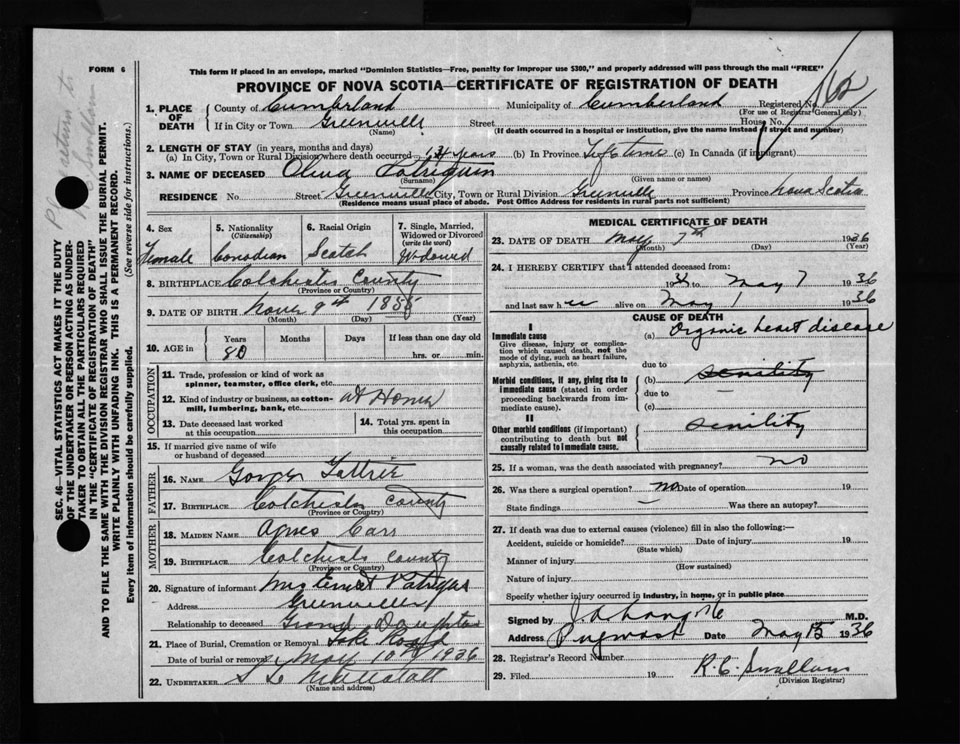 FORM 6
This form if placed in an envelope, marked "Dominion Statistics—Free, penalty for improper use $300," and properly addressed will pass through the mail "FREE"
PROVINCE OF NOVA SCOTIA—CERTIFICATE OF REGISTRATION OF DEATH
1. PLACE OF DEATH
County of Cumberland Municipality of Cumberland Registered No.
(For use of Registrar General only)
If in City or Town Greenville Street House No.
(Name) (If death occurred in a hospital or institution, give the name instead of street and number)
2. LENGTH OF STAY (in years, months and days)
(a) In City, Town or Rural Division where death occurred years (b) In Province Life time (c) In Canada (if immigrant)
3. NAME OF DECEASED
(Surname) (Given name or names)
RESIDENCE No. Street Greenville City, Town or Rural Division Greenville Province Nova Scotia
(Residence means usual place of abode. Post Office Address for residents in rural parts not sufficient)
4. Sex
Female
5. Nationality
(Citizenship)
Canadian
6. Racial Origin
Scotch
7. Single, Married, Widowed or Divorced
(write the word)
Widowed
8. BIRTHPLACE Colchester County
(Province or Country)
9. DATE OF BIRTH
(Month) (Day) (Year)
10. AGE in
Years Months Days If less than one day old
80 hrs. or min.
OCCUPATION
11. Trade, profession or kind of work as spinner, teamster, office clerk, etc.
12. Kind of industry or business, as cotton-mill, lumbering, bank, etc. At Home
13. Date deceased last worked at this occupation
14. Total yrs. spent in this occupation
15. If married give name of wife or husband of deceased
FATHER
16. NAME
17. BIRTHPLACE Colchester County
(Province or Country)
MOTHER
18. MAIDEN NAME Agnes Carr
19. BIRTHPLACE Colchester County
(Province or Country)
20. Signature of informant Mrs Ernest
Address Greenville
Relationship to deceased Grand Daughter
21. Place of Burial, Cremation or Removal Lake Road
Date of burial or removal May 10th 1936
22. UNDERTAKER
(Name and address)
MEDICAL CERTIFICATE OF DEATH
23. DATE OF DEATH May 7th 1936
(Month) (Day) (Year)
24. I HEREBY CERTIFY that I attended deceased from:
to May 7 1936
and last saw her alive on May 1 1936
CAUSE OF DEATH
I
Immediate cause
Give disease, injury or complication which caused death, not the mode of dying, such as heart failure, asphyxia, asthenia, etc.
(a) Organic heart disease
due to
Morbid conditions, if any, giving rise to immediate cause (stated in order proceeding backwards from immediate cause).
(b) senility
due to
(c)
II
Other morbid conditions (if important) contributing to death but not causally related to immediate cause.
senility
25. If a woman, was the death associated with pregnancy? no
26. Was there a surgical operation? no Date of operation 19
State findings Was there an autopsy?
27. If death was due to external causes (violence) fill in also the following:—
Accident, suicide or homicide? Date of injury 19
(State which)
Manner of injury
(How sustained)
Nature of injury
Specify whether injury occurred in industry, in home, or in public place
Signed by M.D.
Address Pugwash Date May 15 1936
28. Registrar's Record Number
29. Filed 19
(Division Registrar)
SEC. 46—VITAL STATISTICS ACT MAKES IT THE DUTY OF THE UNDERTAKER OR PERSON ACTING AS UNDERTAKER TO OBTAIN ALL THE PARTICULARS REQUIRED IN THE "CERTIFICATE OF REGISTRATION OF DEATH" AND TO FILE THE SAME WITH THE DIVISION REGISTRAR WHO SHALL ISSUE THE BURIAL PERMIT.
WRITE PLAINLY WITH UNFADING INK. THIS IS A PERMANENT RECORD.
Every item of information should be carefully supplied. (See reverse side for instructions.)